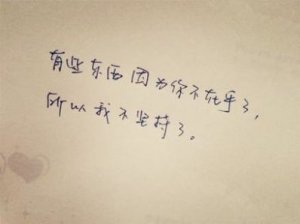 有些东西因为你不在乎了,
所以我不坚持了。